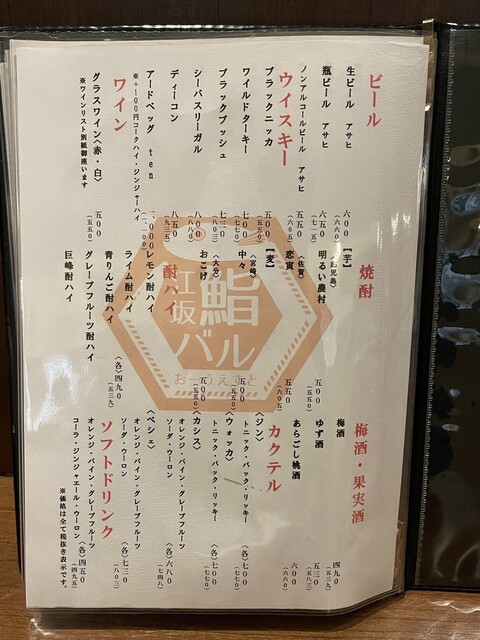 ビール
生ビール アサヒ 六〇〇
(六六〇)
瓶ビール アサヒ 六五〇
(七一五)
ノンアルコールビール アサヒ 五五〇
(六〇五)
ウイスキー
ブラックニッカ 五〇〇
(五五〇)
ワイルドターキー 七〇〇
(七七〇)
ブラックブッシュ 七三〇
(八〇三)
シーバスリーガル 八〇〇
(八八〇)
ディーコン 八五〇
(九三五)
アードベッグ ten 一,〇〇〇
(一,一〇〇)
※+100円コークハイ・ジンジャーハイ
ワイン
グラスワイン〈赤・白〉 五〇〇
(五五〇)
※ワインリスト別紙御座います
焼酎
【芋】
〈鹿児島〉
明るい農村 五〇〇
(五五〇)
〈佐賀〉
恋寅 五五〇
(六〇五)
【麦】
〈宮崎〉
中々 五〇〇
(五五〇)
〈大分〉
おこげ 五〇〇
(五五〇)
酎ハイ
レモン酎ハイ
ライム酎ハイ
青りんご酎ハイ 〈各〉四九〇
(五三九)
グレープフルーツ酎ハイ
巨峰酎ハイ
梅酒・果実酒
梅酒 四九〇
(五三九)
ゆず酒 五三〇
(五八三)
あらごし桃酒 六〇〇
(六六〇)
カクテル
〈ジン〉
トニック・バック・リッキー 〈各〉七〇〇
(七七〇)
〈ウォッカ〉
トニック・バック・リッキー 〈各〉七〇〇
(七七〇)
〈カシス〉
オレンジ・パイン・グレープフルーツ
ソーダ・ウーロン 〈各〉六八〇
(七四八)
〈ペシェ〉
オレンジ・パイン・グレープフルーツ
ソーダ・ウーロン 〈各〉七三〇
(八〇三)
ソフトドリンク
オレンジ・パイン・グレープフルーツ
コーラ・ジンジャエール・ウーロン 〈各〉四五〇
(四九五)
※価格は全て税抜き表示です。
江坂
鮨
バル
おーうえすと